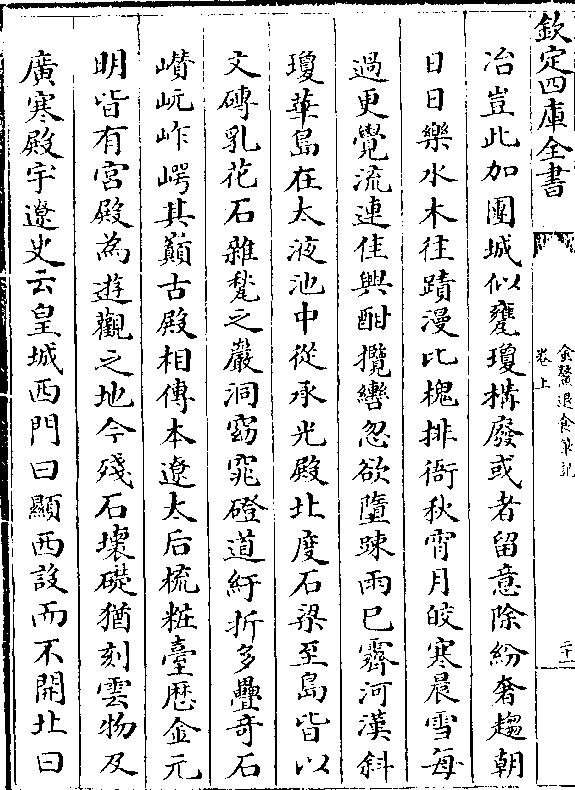 欽定四庫全書
金鰲退食筆記
卷上
二十一
冶豈此加團城似甕瓊構廢或者留意除紛奢趨朝
日日樂水木往蹟漫比槐排衙秋宵月皎寒晨雪每
過更覺流連佳興酣攬轡忽欲墮踈雨已霽河漢斜
瓊華島在太液池中從承光殿北度石梁至島皆以
文磚乳花石雜甃之巖洞窈窕磴道紆折多疊奇石
巑岏岞崿其巔古殿相傳本遼太后梳粧臺厯金元
明皆有宮殿為遊觀之地今殘石壞礎猶刻雲物及
廣寒殿宇遼史云皇城西門曰顯西設而不開北曰